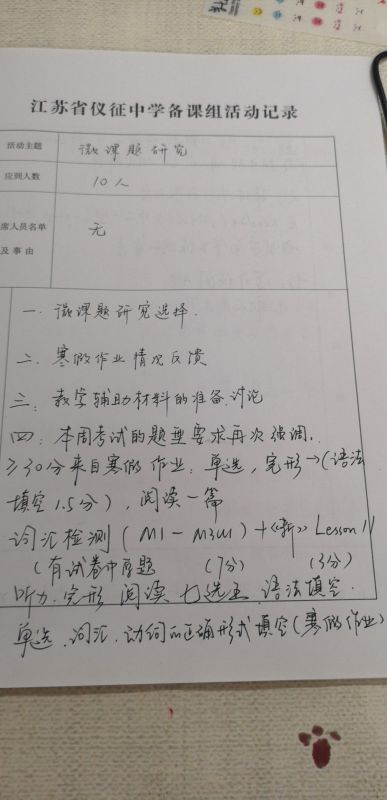 江苏省仪征中学备课组活动记录
活动主题 微课题研究
应到人数 10人
席人员名单 无
及事由
一. 微课题研究选择.
二、寒假作业情况反馈
三、教学辅助材料的准备、讨论
四、本周考试的题型要求再次强调.
≥30分来自寒假作业: 单选, 完形→(语法
填空1.5分), 阅读一篇
词汇检测 (M1-M3U1)+《新》Lesson 11
(有试卷中原题 (7分) (3分)
听力. 完形 阅读 七选五 语法填空.
单选、词汇、动词的正确形式填空(寒假作业)